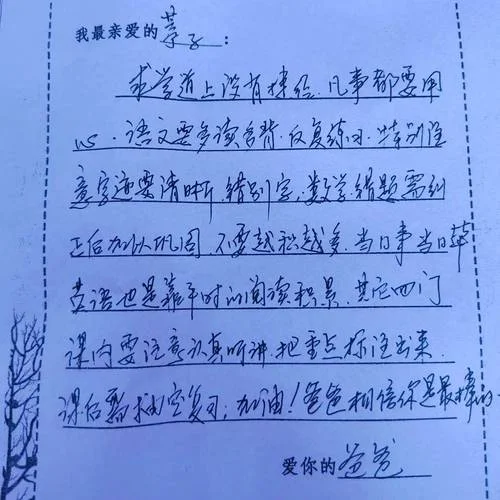 我最亲爱的孝子：
求学道上没有捷径，凡事都要用
心。语文要多读多背，反复练习，特别注
意字迹要清晰，错别字，数学错题需纠
正后加以巩固，不要越积越多，当日事当日毕
英语也是靠平时的阅读积累，其它四门
课内要注意认真听讲，把重点标注出来，
课后需抽空复习；加油！爸爸相信你是最棒的
爱你的爸爸